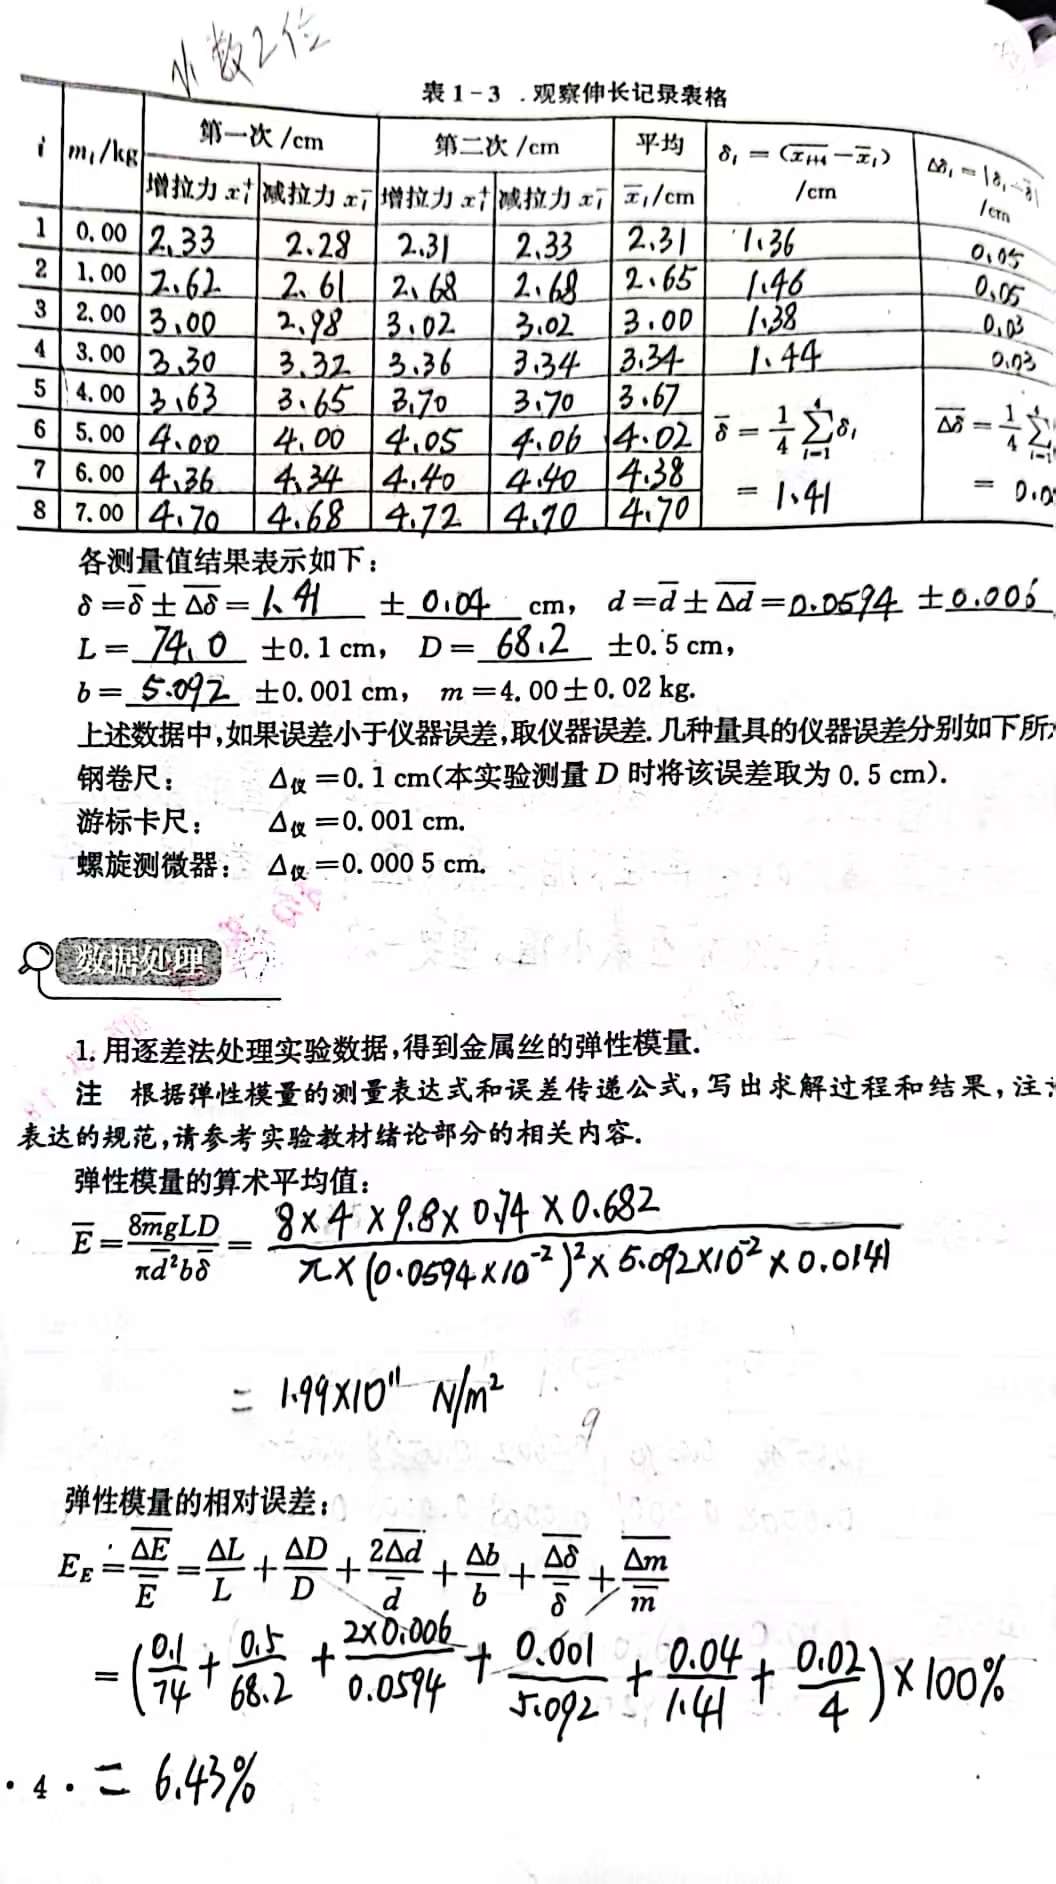 小数2位
表 1-3 .观察伸长记录表格
i mᵢ/kg 第一次/cm 第二次/cm 平均 δᵢ=(x̄ᵢ₊₄-x̄ᵢ) /cm Δδᵢ=|δᵢ-δ̄| /cm
增拉力 xᵢ⁺ 减拉力 xᵢ⁻ 增拉力 xᵢ⁺ 减拉力 xᵢ⁻ x̄ᵢ/cm
1 0.00 2.33 2.28 2.31 2.33 2.31 1.36 0.05
2 1.00 2.62 2.61 2.68 2.68 2.65 1.46 0.05
3 2.00 3.00 2.98 3.02 3.02 3.00 1.38 0.03
4 3.00 3.30 3.32 3.36 3.34 3.34 1.44 0.03
5 4.00 3.63 3.65 3.70 3.70 3.67
6 5.00 4.00 4.00 4.05 4.06 4.02 δ̄=1/4 Σδᵢ Δδ̄=1/4 Σ
7 6.00 4.36 4.34 4.40 4.40 4.38 =1.41
8 7.00 4.70 4.68 4.72 4.70 4.70
各测量值结果表示如下:
δ=δ̄±Δδ̄=1.41 ±0.04 cm, d=d̄±Δd̄=0.0594 ±0.006
L=74.0 ±0.1 cm, D=68.2 ±0.5 cm,
b=5.092 ±0.001 cm, m=4.00±0.02 kg.
上述数据中,如果误差小于仪器误差,取仪器误差.几种量具的仪器误差分别如下所
钢卷尺: Δ仪=0.1 cm(本实验测量 D 时将该误差取为 0.5 cm).
游标卡尺: Δ仪=0.001 cm.
螺旋测微器: Δ仪=0.000 5 cm.
数据处理
1. 用逐差法处理实验数据,得到金属丝的弹性模量.
注 根据弹性模量的测量表达式和误差传递公式,写出求解过程和结果,注
表达的规范,请参考实验教材绪论部分的相关内容.
弹性模量的算术平均值:
Ē=8m̄gLD/πd̄²bδ̄=8×4×9.8×0.74×0.682/π×(0.0594×10⁻²)²×5.092×10⁻²×0.0141
=1.99×10¹¹ N/m²
9
弹性模量的相对误差:
E_E=ΔĒ/Ē=ΔL/L+ΔD/D+2Δd̄/d̄+Δb/b+Δδ̄/δ̄+Δm̄/m̄
=(0.1/74+0.5/68.2+2×0.006/0.0594+0.001/5.092+0.04/1.41+0.02/4)×100%
·4· =6.43%